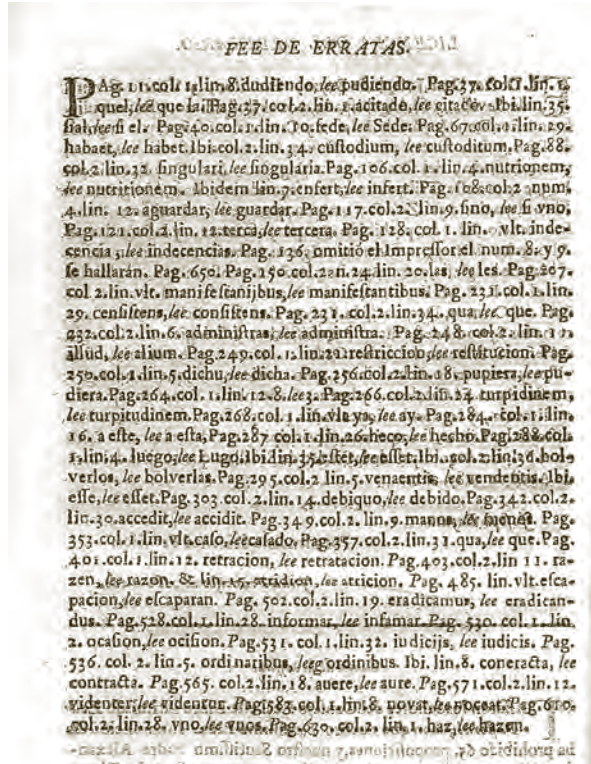 FEE DE ERRATAS.
PAg. 11. col. 1. lin. 8. dudiendo, lee pudiendo. Pag. 37. col. 1. lin. 1.
quel, lee que la. Pag. 37. col. 2. lin. 1. acitado, lee citado. Ibi. lin. 35.
sial, lee si el. Pag. 40. col. 1. lin. 10. fede, lee Sede. Pag. 67. col. 1. lin. 29.
habaet, lee habet. Ibi. col. 2. lin. 34. custodium, lee custoditum. Pag. 88.
col. 2. lin. 32. singulari, lee singularia. Pag. 106. col. 1. lin. 4. nutrionem,
lee nutritionem. Ibidem lin. 7. enfert, lee infert. Pag. 108. col. 2 num.
4. lin. 12. aguardar, lee guardar. Pag. 117. col. 2. lin. 9. sino, lee si vno.
Pag. 121. col. 2. lin. 12. terca, lee tercera. Pag. 128. col. 1. lin. vlt. inde-
cencia, lee indecencias. Pag. 136. omitiò el Impressor el num. 8. y 9.
se hallaràn. Pag. 650. Pag. 150. col. 2. n. 24. lin. 20. las, lee les. Pag. 207.
col. 2. lin. vlt. manifestanijbus, lee manifestantibus. Pag. 231. col. 1. lin.
29. censistens, lee consistens. Pag. 231. col. 2. lin. 34. qua, lee que. Pag.
232. col. 2. lin. 6. administras, lee administra. Pag. 248. col. 2. lin. 11.
allud, lee alium. Pag. 249. col. 1. lin. 21. restriccion, lee restitucion. Pag.
250. col. 1. lin. 5. dichu, lee dicha. Pag. 256. col. 2. lin. 18. pupiera, lee pu-
diera. Pag. 264. col. 1. lin. 12. 8. lee 3. Pag. 266. col. 2. lin. 24. turpidinem,
lee turpitudinem. Pag. 268. col. 1. lin. vlt. ya, lee ay. Pag. 284. col. 1. lin.
16. a este, lee a esta, Pag. 287 col. 1. lin. 26. heco, lee hecho. Pag. 288. col.
1. lin. 4. luego, lee Lugo. Ibi. lin. 35. estet, lee esset. Ibi. col. 2. lin. 36. bol-
verlos, lee bolverlas. Pag. 295. col. 2 lin. 5. venaentis, lee vendentis. Ibi.
esse, lee esset. Pag. 303. col. 2. lin. 14. debiquo, lee debido. Pag. 342. col. 2.
lin. 30. accedit, lee accidit. Pag. 349. col. 2. lin. 9. manos, lee menos. Pag.
353. col. 1. lin. vlt. caso, lee casado. Pag. 357. col. 2. lin. 31. qua, lee que. Pag.
401. col. 1. lin. 12. retracion, lee retratacion. Pag. 403. col. 2. lin 11. ra-
zen, lee razon. & lin. 15. atridion, lee atricion. Pag. 485. lin. vlt. esca-
pacion, lee escaparan. Pag. 502. col. 2. lin. 19. eradicamus, lee eradican-
dus. Pag. 528. col. 1. lin. 28. informar, lee infamar. Pag. 530. col. 1. lin.
2. ocasion, lee ocision. Pag. 531. col. 1. lin. 32. iudicijs, lee iudicis. Pag.
536. col. 2. lin. 5. ordinaribus, lee ordinibus. Ibi. lin. 8. coneracta, lee
contracta. Pag. 565. col. 2. lin. 18. auere, lee aure. Pag. 571. col. 2. lin. 12.
videnter, lee videntur. Pag. 583. col. 1. lin. 8. novat, lee noceat. Pag. 610.
col. 2. lin. 28. vno, lee vnos. Pag. 630. col. 2. lin. 1. haz, lee hazen.